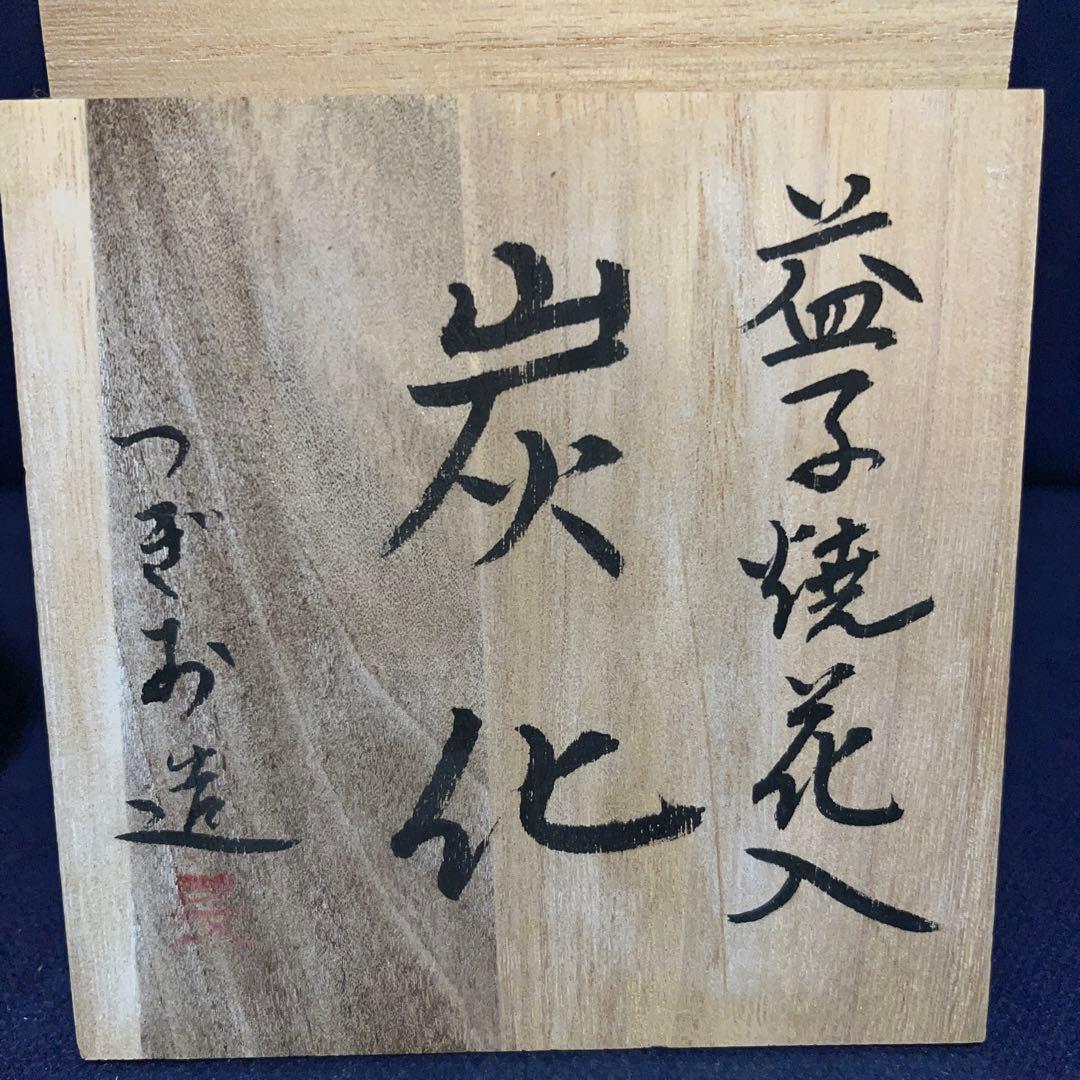 益子焼花入
炭化
つぎお造